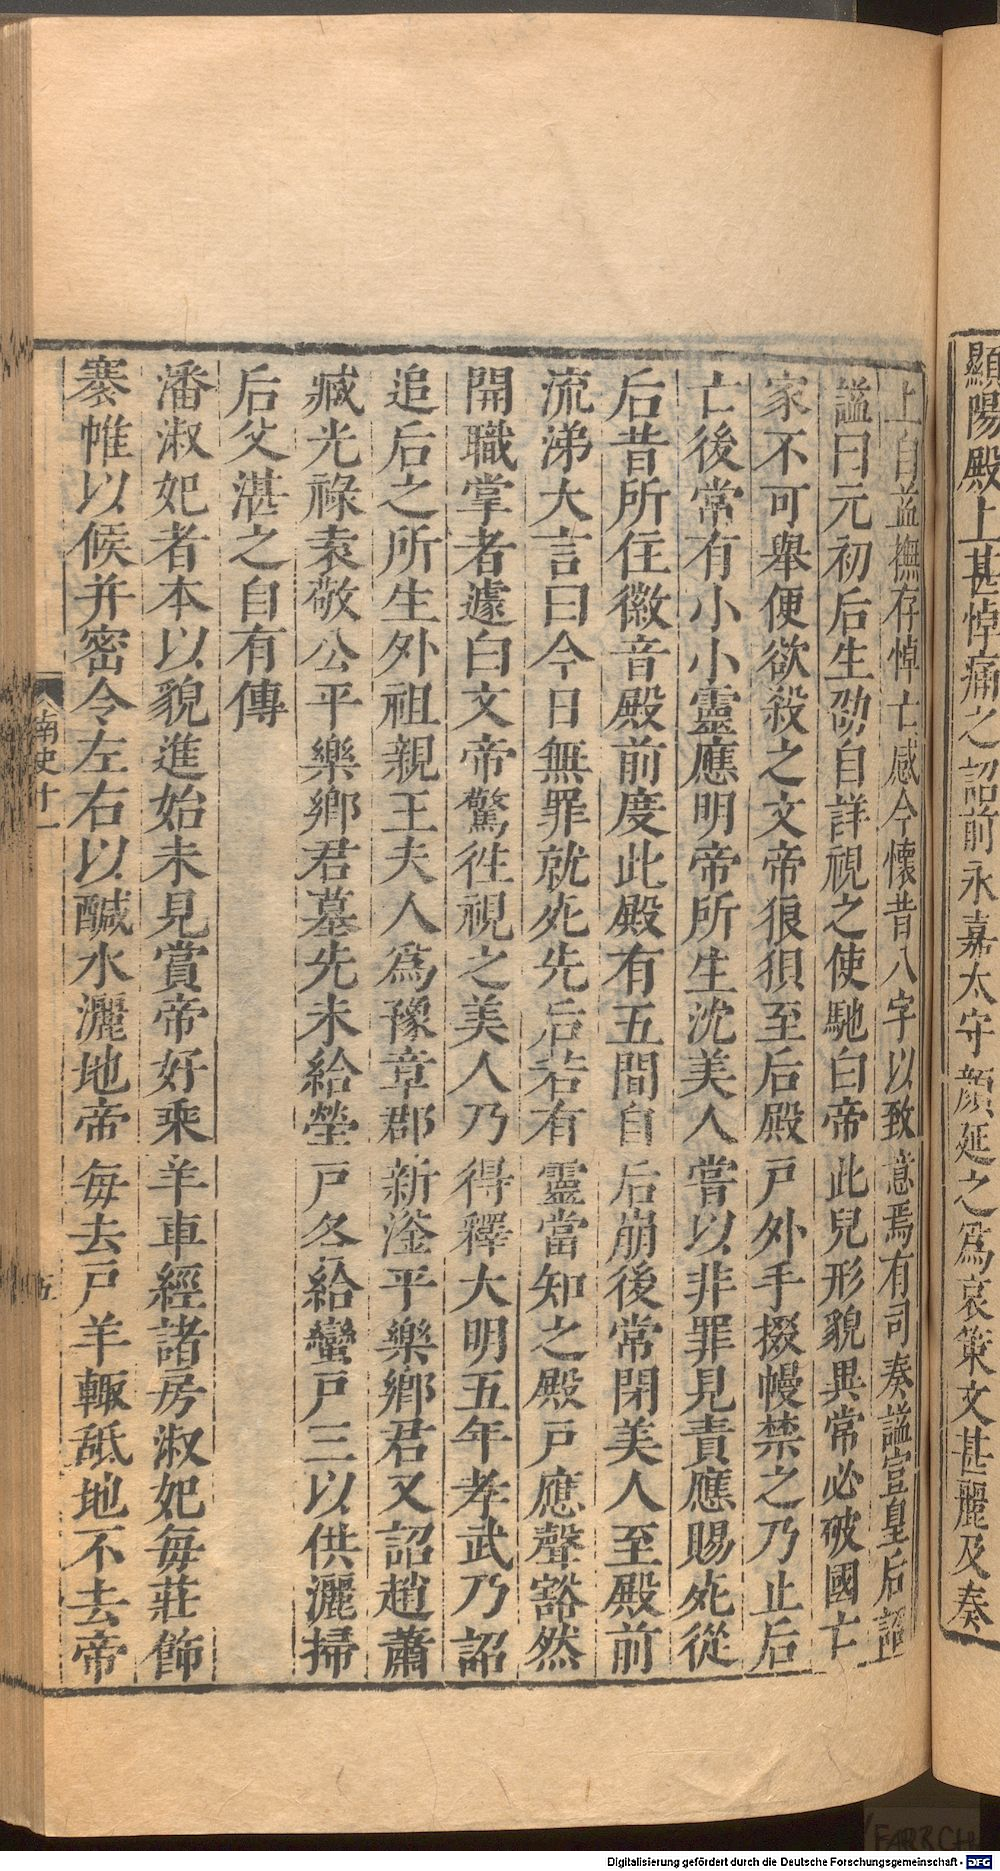 顯陽殿上甚悼痛之詔前永嘉太守顏延之爲哀策文甚麗及奏
上自益撫存悼亡感今懷昔八字以致意焉有司奏謚宣皇后詔
謚曰元初后生劭自詳視之使馳白帝此兒形貌異常必破國亡
家不可舉便欲殺之文帝狼狽至后殿戸外手掇幔禁之乃止后
亡後常有小小靈應明帝所生沈美人嘗以非罪見責應賜死從
后昔所住徽音殿前度此殿有五間自后崩後常閉美人至殿前
流涕大言曰今日無罪就死先后若有靈當知之殿戸應聲豁然
開職掌者遽白文帝驚徃視之美人乃得釋大明五年孝武乃詔
追后之所生外祖親王夫人爲豫章郡新淦平樂鄉君又詔趙蕭
臧光祿袁敬公平樂鄉君墓先未給塋戸各給蠻戸三以供灑掃
后父湛之自有傳
潘淑妃者本以貌進始未見賞帝好乘羊車經諸房淑妃每莊飾
褰帷以候并密令左右以醎水灑地帝每去戸羊輙䑛地不去帝
南史十一
五
Digitalisierung gefördert durch die Deutsche Forschungsgemeinschaft - DFG